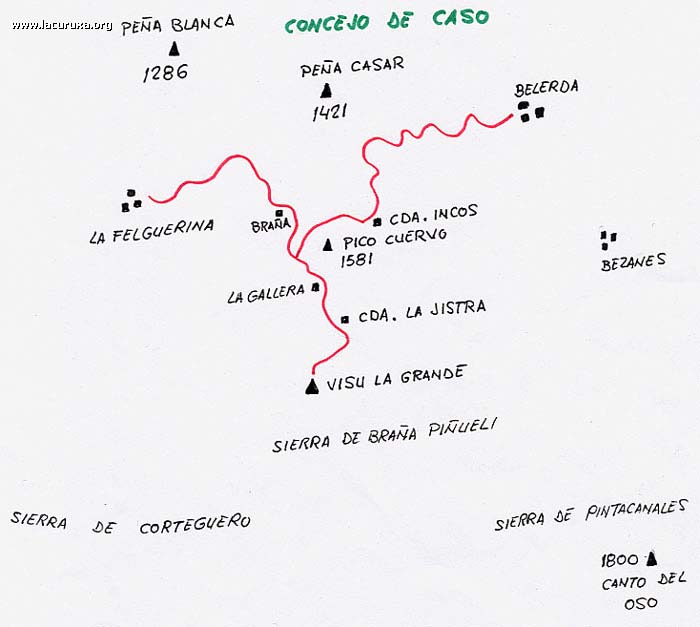 www.lacuruxa.org
PEÑA BLANCA
1286
CONCEJO DE CASO
PEÑA CASAR
1421
BELERDA
LA FELGUERINA
BRAÑA
CDA. INCOS
PICO CUERVO
1581
BEZANES
LA GALLERA
CDA. LA JISTRA
VISU LA GRANDE
SIERRA DE BRAÑA PIÑUELI
SIERRA DE CORTEGUERO
SIERRA DE PINTACANALES
1800
CANTO DEL
OSO